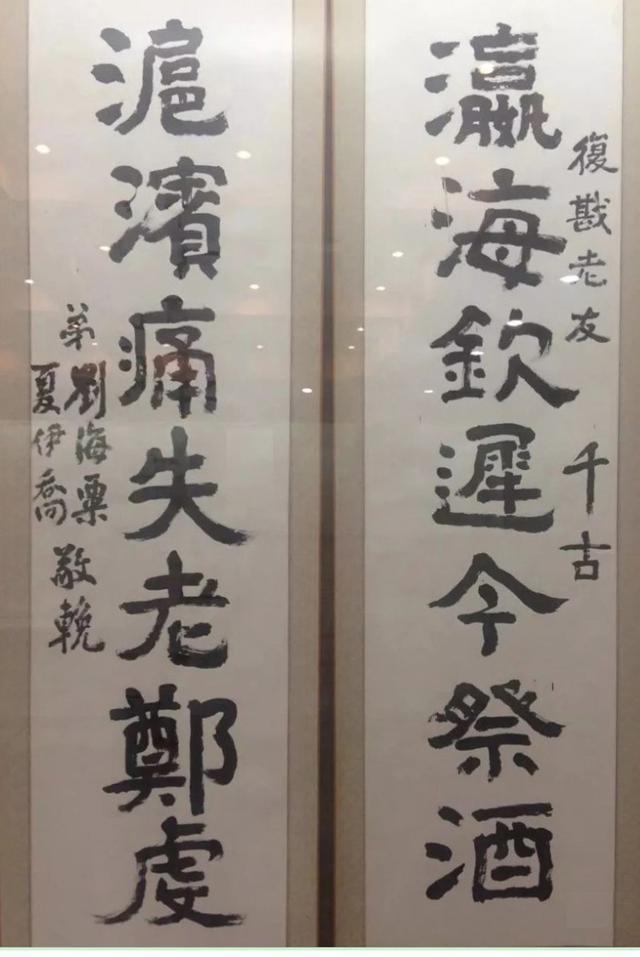 復戡老友
千古
瀛海欽遲今祭酒
滬濱痛失老鄭虔
弟劉海粟
夏伊喬
敬輓